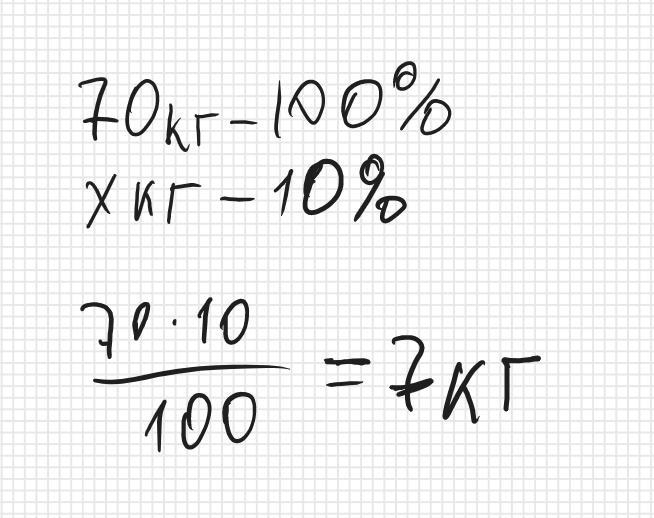 70кг – 100%
х кг – 10%
70 · 10 / 100 = 7кг